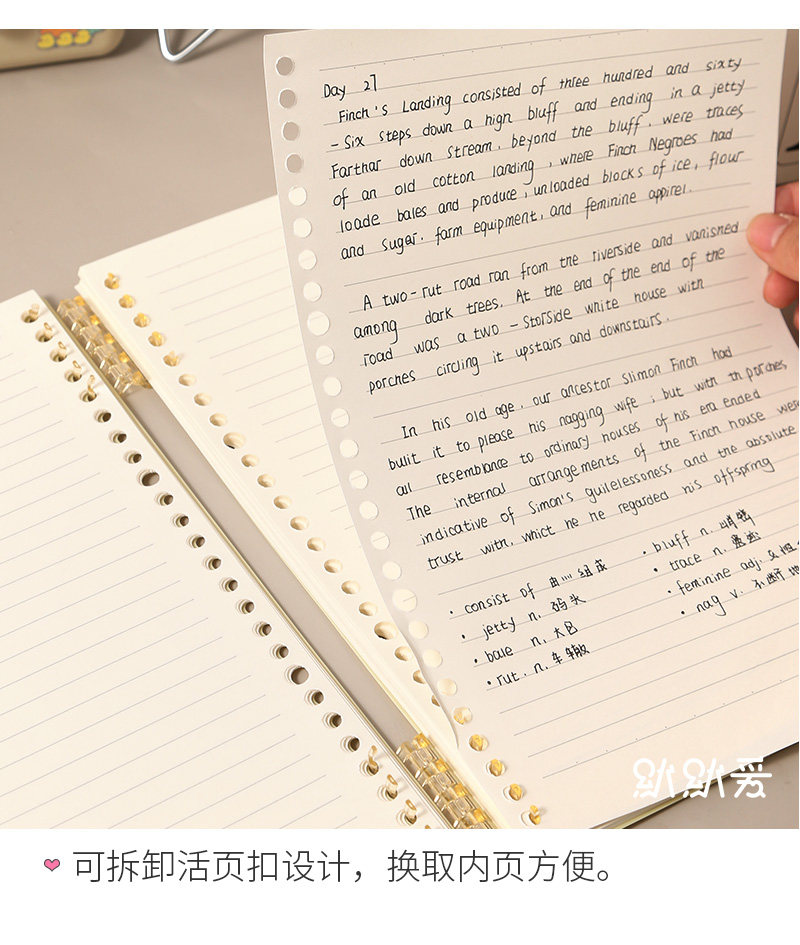 Day 27
Finch's Landing consisted of three hundred and sixty
-Six steps down a high bluff and ending in a jetty
Farthar down stream, beyond the bluff, were traces
of an old cotton landing, where Finch Negroes had
loade bales and produce, unloaded blocks of ice, flour
and sugar, farm equipment, and feminine appirel.
A two-rut road ran from the riverside and vanished
among dark trees. At the end of the end of the
road was a two-Storside white house with
porches circling it upstairs and downstairs.
In his old age, our ancestor Slimon Finch had
bulit it to please his nagging wife; but with th porches
all resemblance to ordinary houses of his era ended
The internal arrangements of the Finch house were
indicative of Simon's guilelessoness and the absolute
trust with, whict he he regarded his offspring
• consist of 由…组成
• jetty n. 码头
• bale n. 大包
• rut. n. 车辙
• bluff n. 峭壁
• trace n. 痕迹
• feminine adj.
• nag v. 不断地
趴趴爱
可拆卸活页扣设计，换取内页方便。